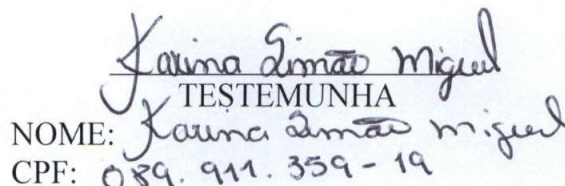 Karina Simão Miguel
TESTEMUNHA
NOME: Karina Simão Miguel
CPF: 089.911.359-19